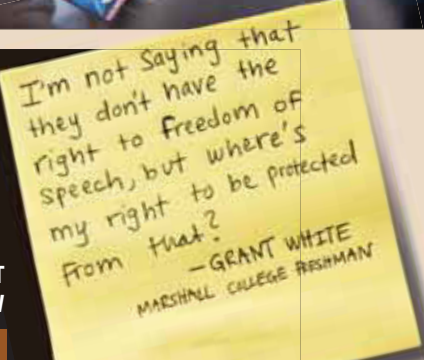 I'm not saying that
they don't have the
right to freedom of
speech, but where's
my right to be protected
from that?
—GRANT WHITE
MARSHALL COLLEGE FRESHMAN
T